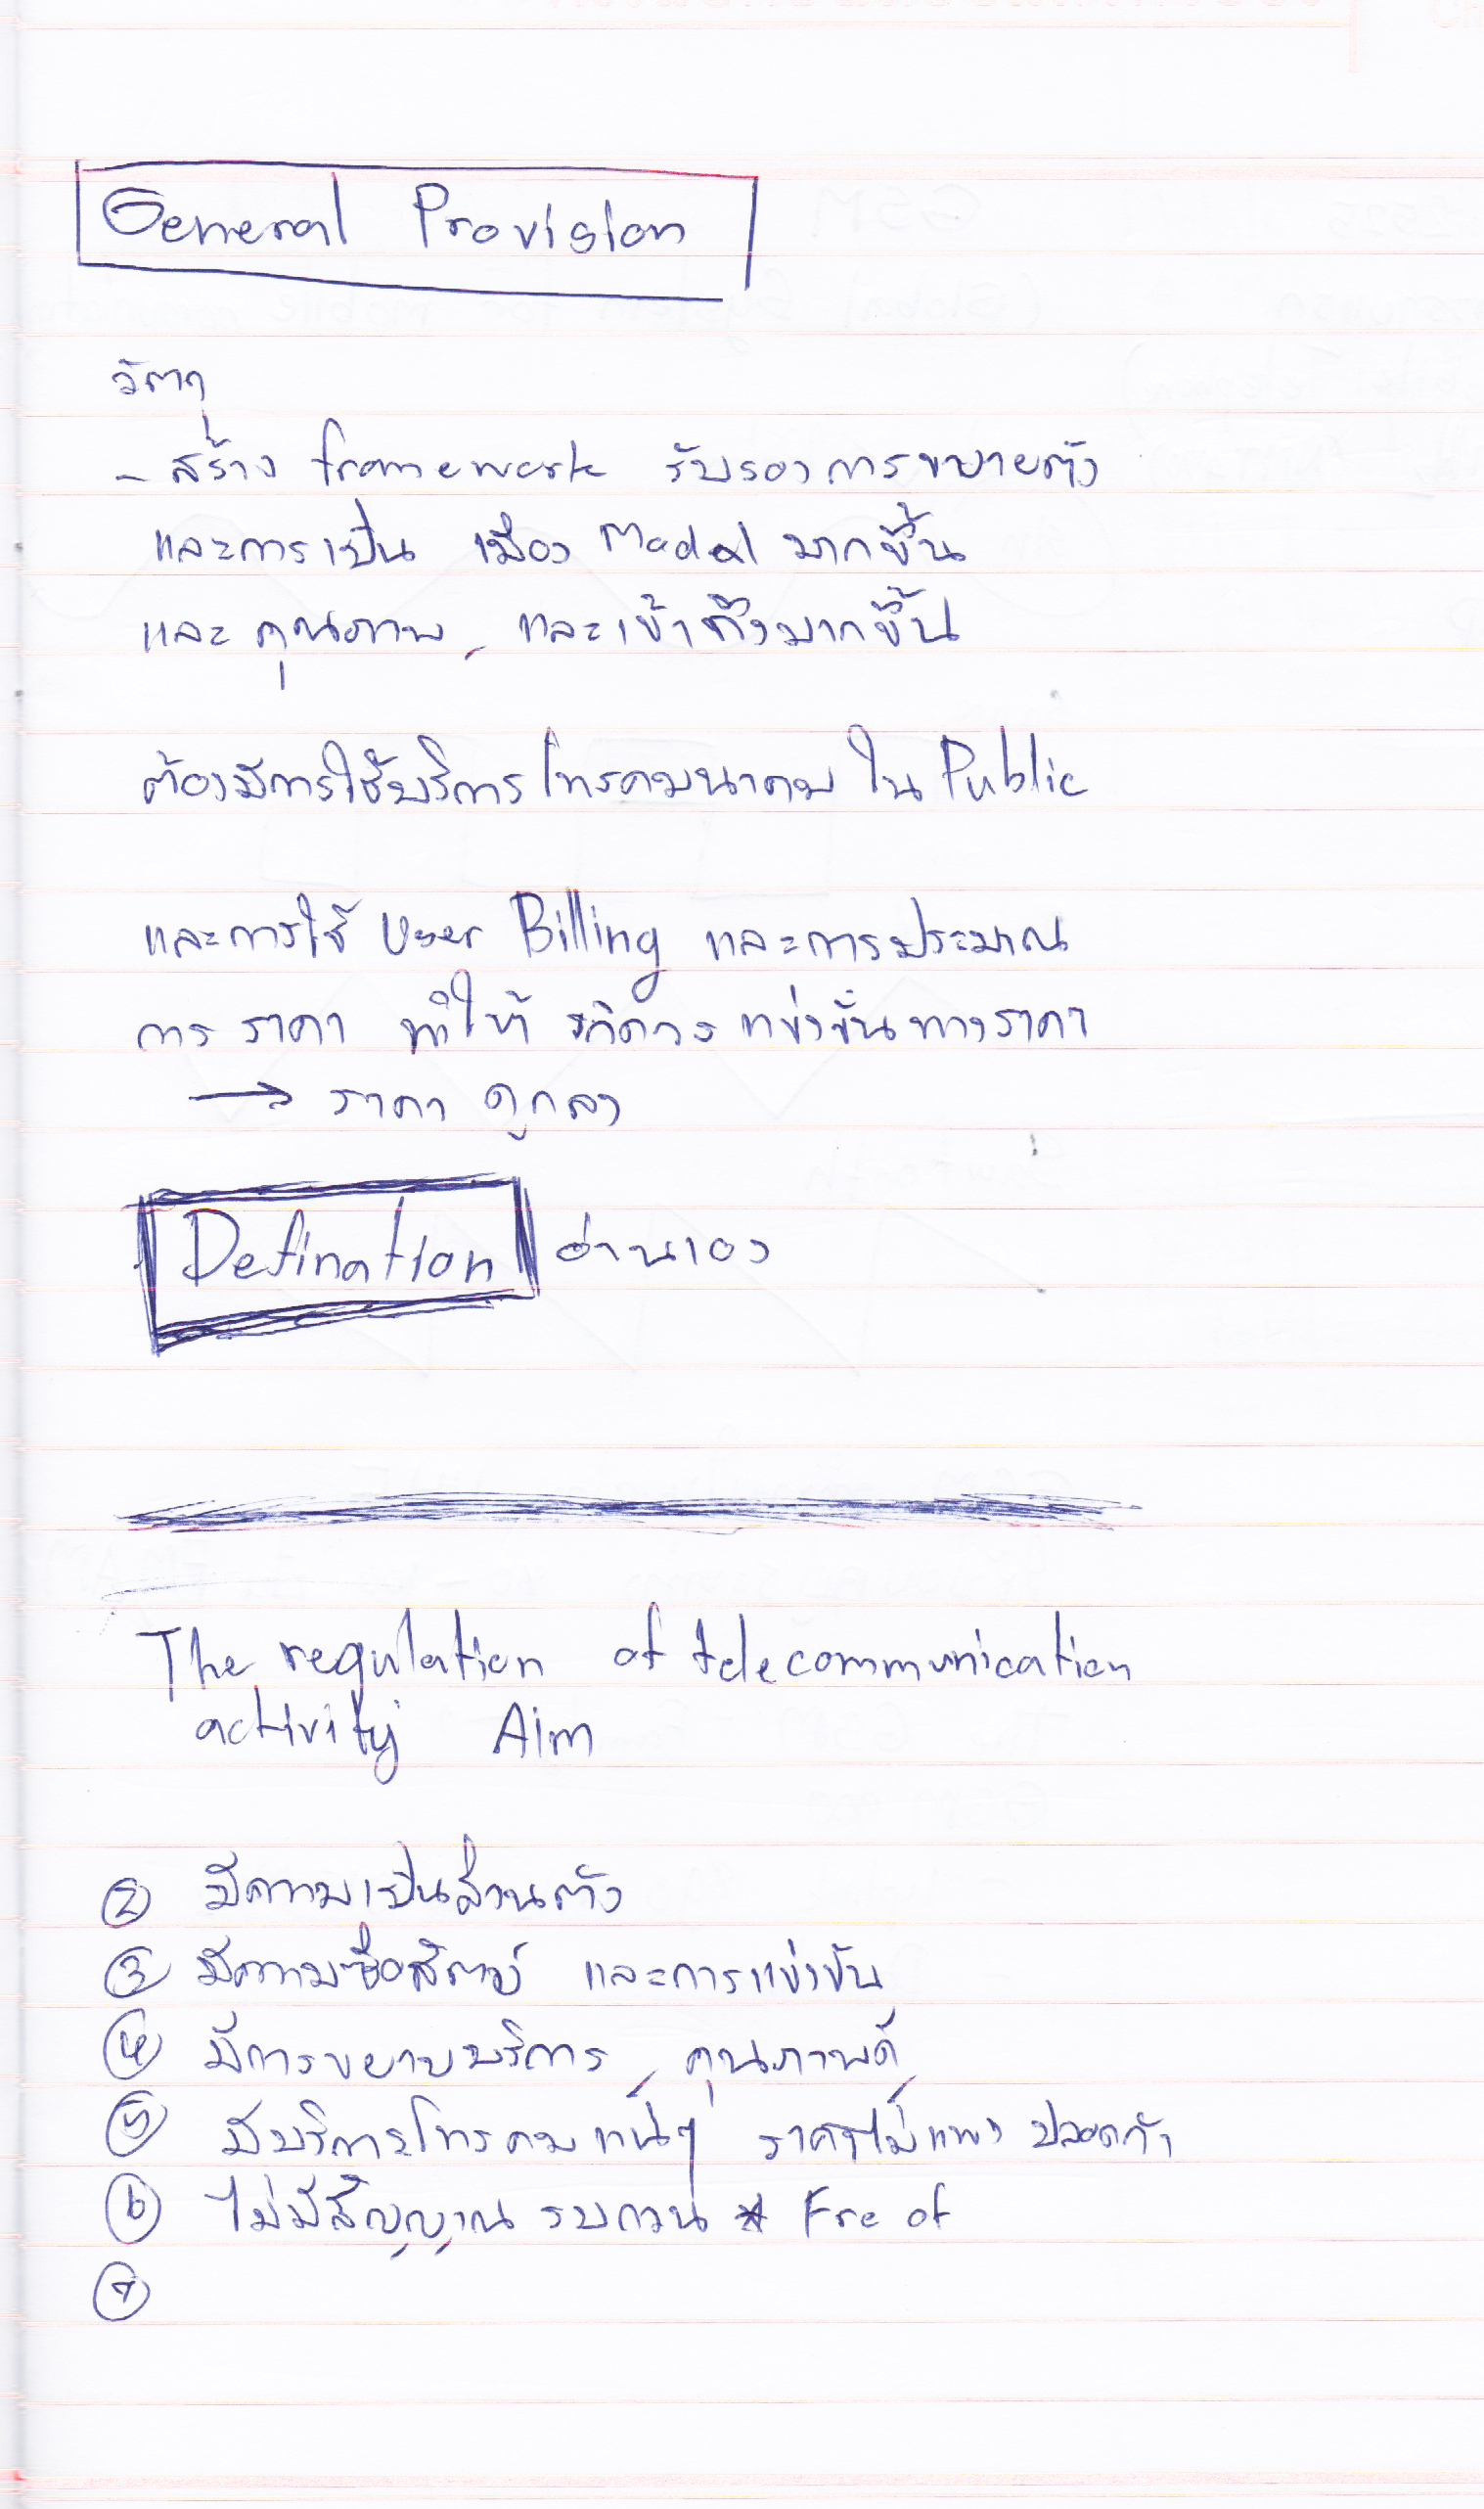 General Provision
วัตถุ
- สร้าง framework รับรองการขยายตัว
และการเป็น เมือง Model มากขึ้น
และ คุณภาพ, และเข้าถึงมากขึ้น
ต้องมีการใช้บริการโทรคมนาคม ใน Public
และการใช้ User Billing และการประมาณ
การ ราคา ทำให้ เกิดการ แข่งขั่นทางราคา
→ ราคา ถูกลง
Defination อ่านเอง
The regulation of telecommunication
activity Aim
② มีความเป็นส่วนตัว
③ มีความซื่อสัตย์ และการแข่งขัน
④ มีการขยายบริการ, คุณภาพดี
⑤ มีบริการโทรคม แน่ๆ ราคาไม่แพง ปลอดภัย
⑥ ไม่มีสัญญาณ รบกวน * Fre of
⑦